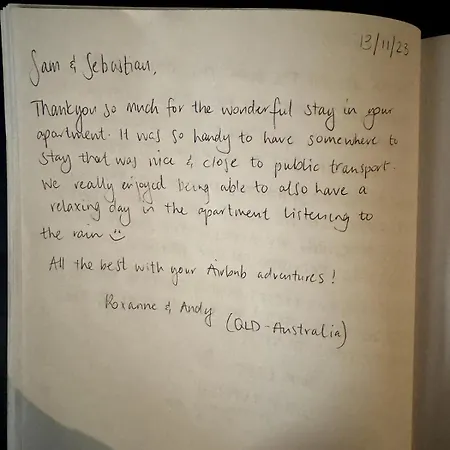 13/11/23
Sam & Sebastian,
Thankyou so much for the wonderful stay in your
apartment. It was so handy to have somewhere to
stay that was nice & close to public transport.
We really enjoyed being able to also have a
relaxing day in the apartment listening to
the rain ☺
All the best with your Airbnb adventures!
Roxanne & Andy
(QLD - Australia)